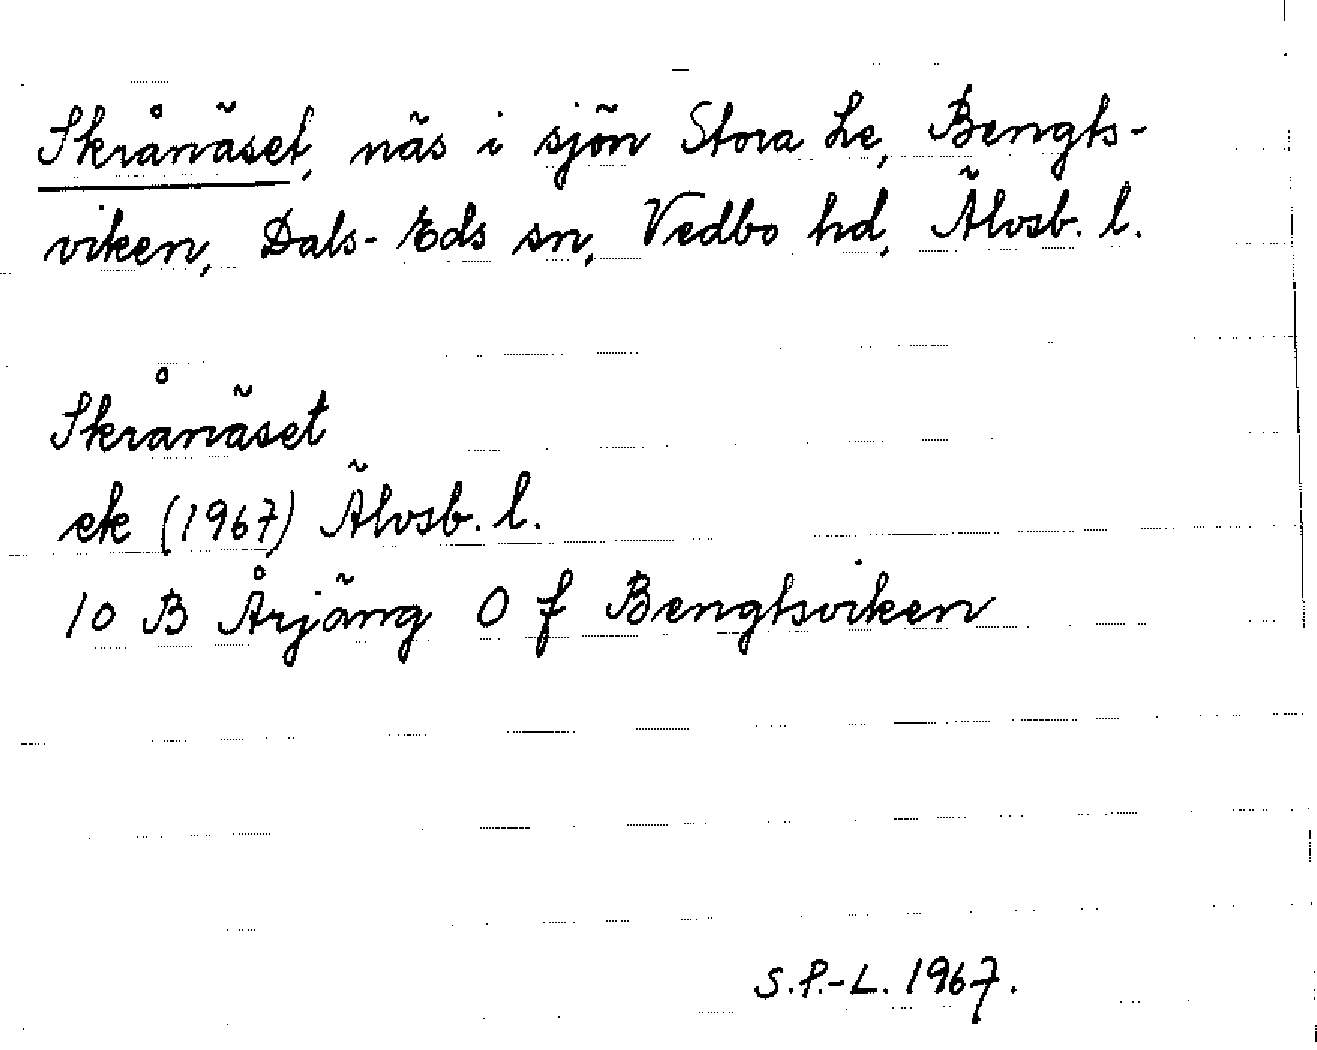 Skrånäset, näs i sjön Stora Le, Bengts-
viken, Dals-Eds sn, Vedbo hd, Älvsb. l.
Skrånäset
ek (1967) Älvsb. l.
10 B Årjäng 0 f Bengtsviken
S.P.-L. 1967.